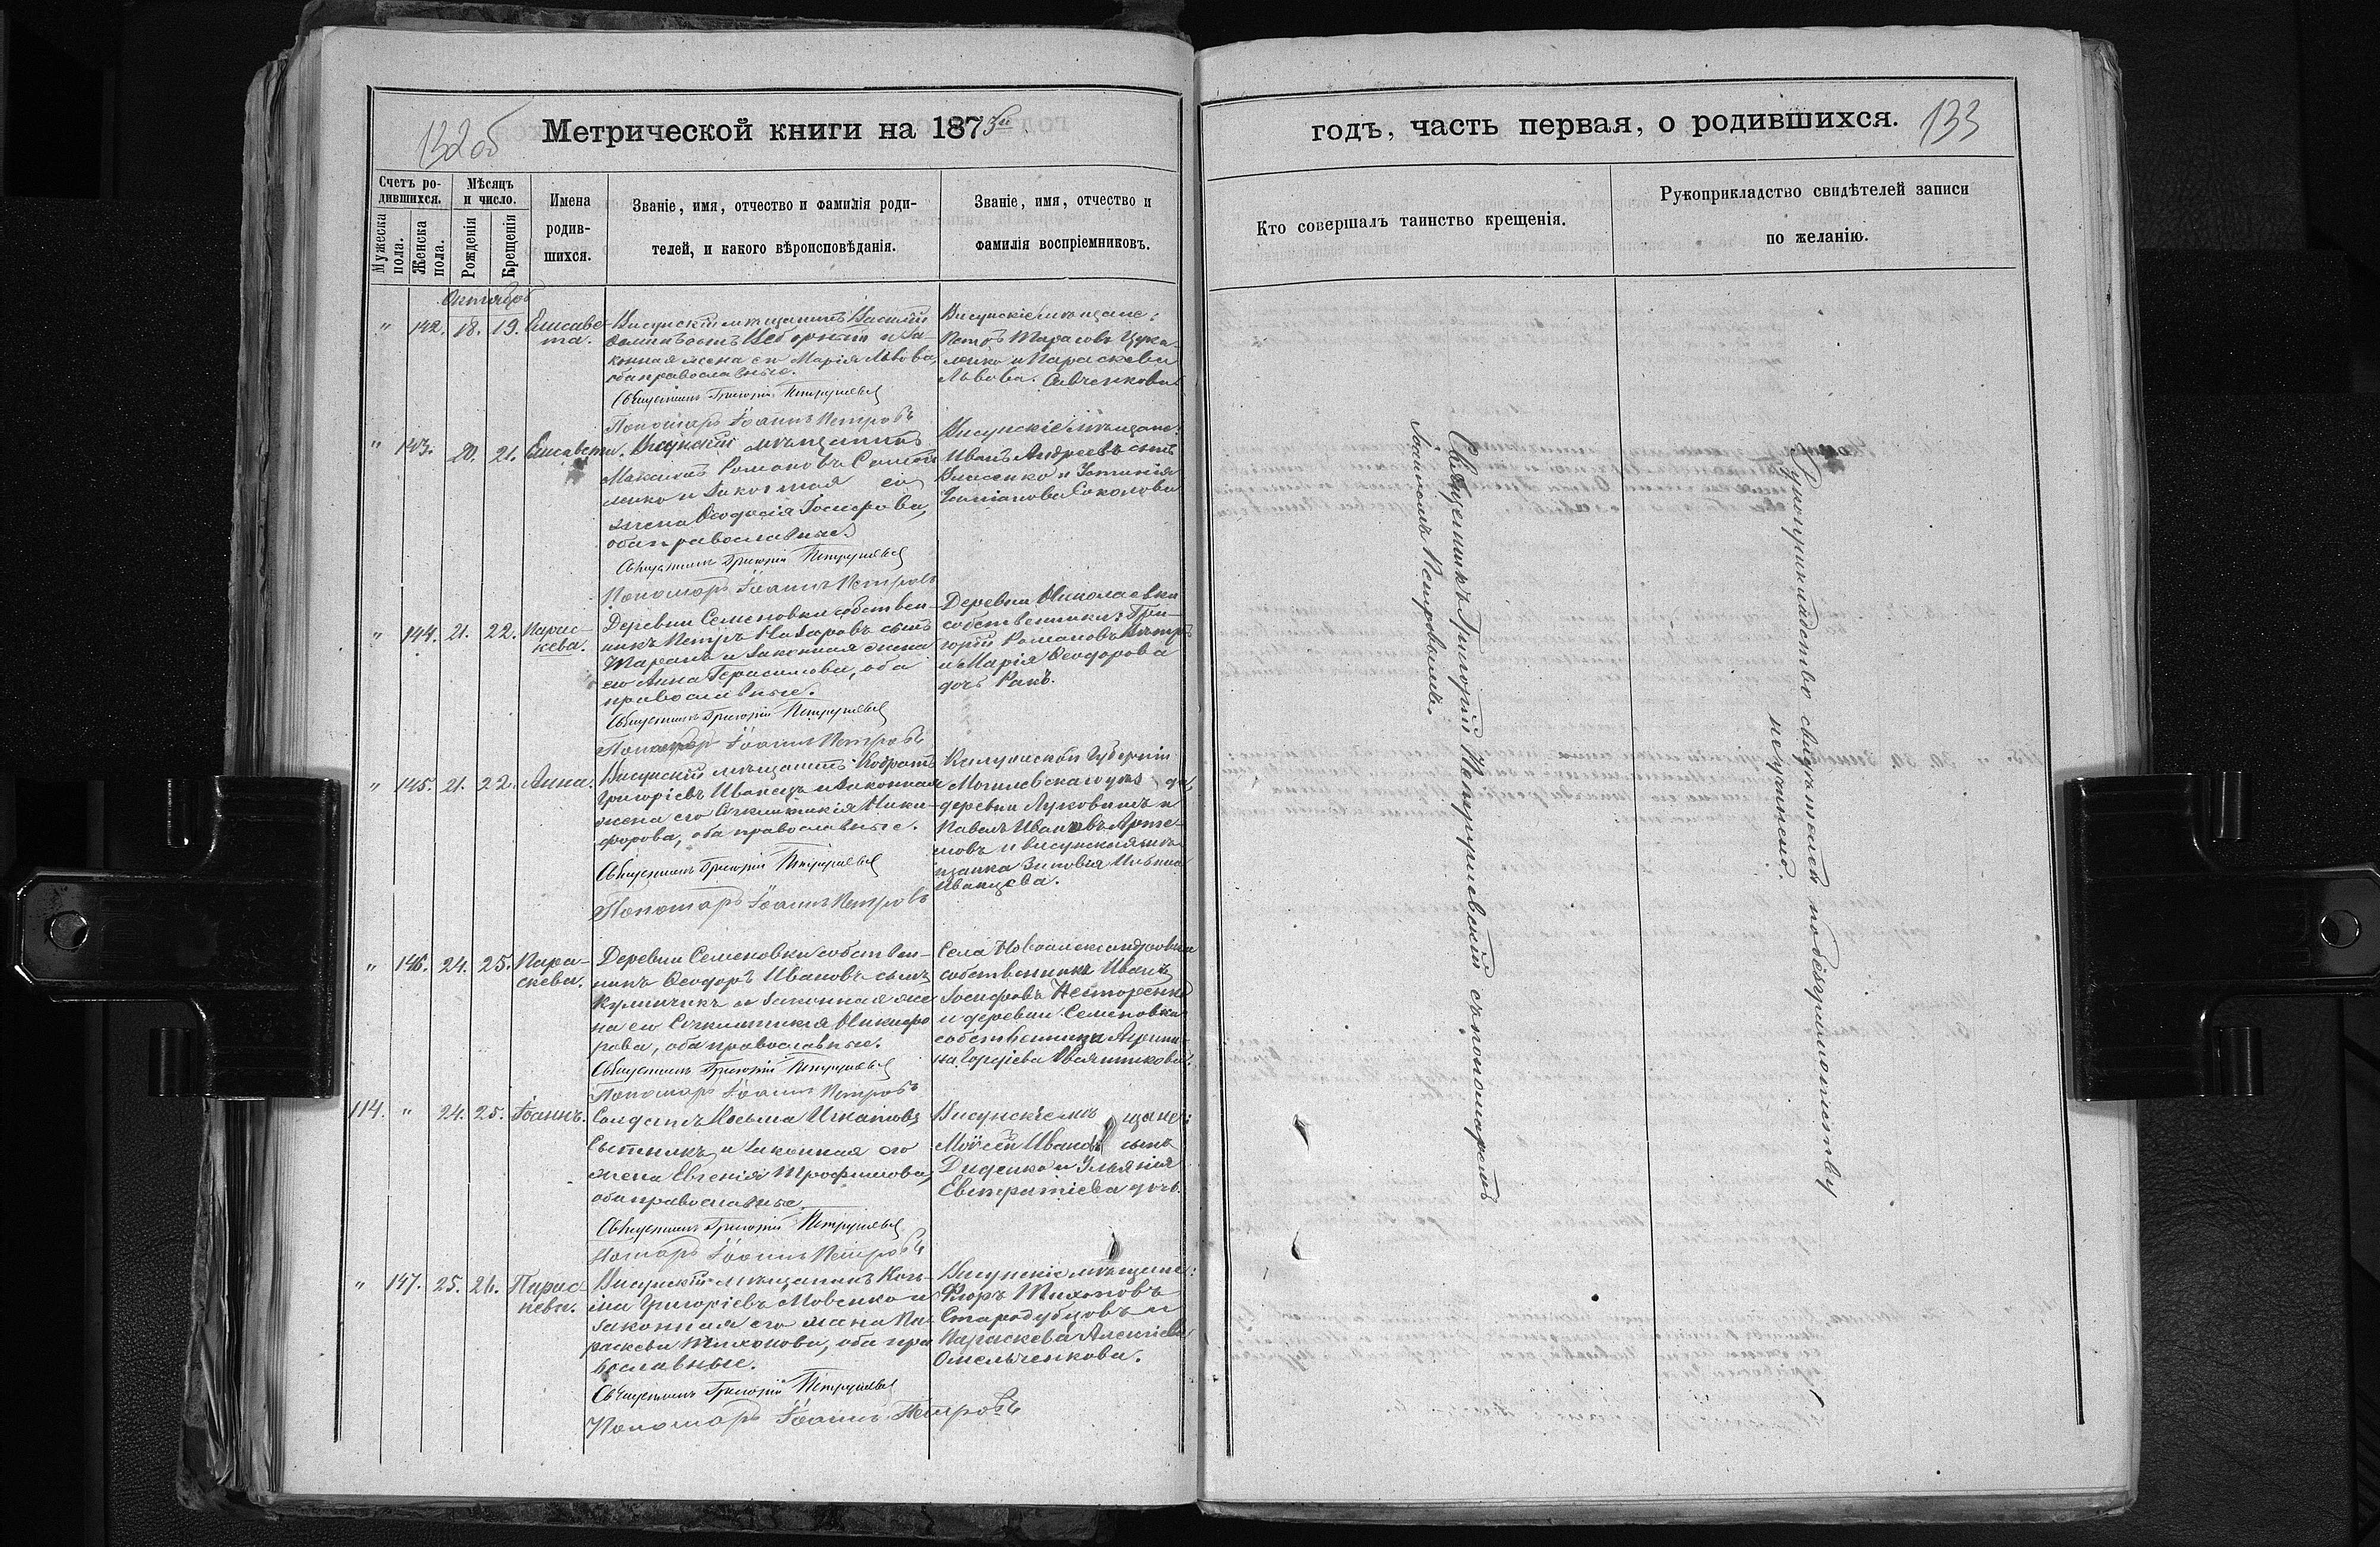 132об
Метрической книги на 1875й
Счетъ ро-
дившихся.
Мужеска
пола.
Женска
пола.
Мѣсяцъ
и число.
Рожденія
Крещенія
Имена
родив-
шихся.
Званіе, имя, отчество и фамилія роди-
телей, и какого вѣроисповѣданія.
Званіе, имя, отчество и
фамилія воспріемниковъ.
Октябрь
" 142. 18. 19. Елисаве-
та.
Висунскій мѣщанинъ Василій
сынъ и за-
конная жена его Марія Львова,
оба православные.
Священникъ Григорій Петрушевскій
Пономарь Іоаннъ Петровъ
Висунскіе мѣщане:
Петръ Тарасовъ Цука-
ленко и Параскева
Львова Савченкова
" 143. 20. 21. Елисавета.
Висунскій мѣщанинъ
Максимъ Романовъ
и законная его
жена Ѳеодосія Іосифова,
оба православные
Священникъ Григорій Петрушевскій
Пономарь Іоаннъ Петровъ
Висунскіе мѣщане:
Иванъ Андреевъ сынъ
Власенко и Устинія
Соколова
" 144. 21. 22. Парас-
кева.
Деревни Семеновки собствен-
никъ Петръ Назаровъ сынъ
Таранъ и законная жена
его Анна Герасимова, оба
православные.
Священникъ Григорій Петрушевскій
Пономарь Іоаннъ Петровъ
Деревни Николаевки
собственники: Гри-
горій Романовъ
и Марія Ѳеодорова
дочь Ракъ.
" 145. 21. 22. Анна.
Висунскій мѣщанинъ Кодратъ
Григорьевъ Иванецъ и законная
жена его Сѵнклитикія Ники-
форова, оба православные.
Священникъ Григорій Петрушевскій
Пономарь Іоаннъ Петровъ
Калужской губерніи
деревни
Павелъ Ивановъ Арте-
мовъ и висунская мѣ-
щанка Зиновія Ильина
Иванцева.
" 146. 24. 25. Пара-
скева.
Деревни Семеновки собствен-
никъ Ѳеодоръ Ивановъ сынъ
и законная же-
на его Сѵнклитикія Никифо-
рова, оба православные.
Священникъ Григорій Петрушевскій
Пономарь Іоаннъ Петровъ
Села Новоалександровки
собственникъ Иванъ
Іосифовъ Несторенко
и деревни Семеновки
собственница Агрипи-
на Гордіева
114. " 24. 25. Іоаннъ.
Солдатъ Косьма Игнатовъ
Сытникъ и законная его
жена Евгенія Трофимова,
оба православные.
Священникъ Григорій Петрушевскій
Пономарь Іоаннъ Петровъ
Висунскіе мѣщане:
Моѵсей Ивановъ сынъ
Диденко и Ульянія
Евстратіева дочь.
" 147. 25. 26. Парас-
кева.
Висунскій мѣщанинъ Козь-
ма Григорьевъ Мовенко и
законная его жена Па-
раскева Тихонова, оба пра-
вославные.
Священникъ Григорій Петрушевскій
Пономарь Іоаннъ Петровъ
Висунскіе мѣщане:
Флоръ Тихоновъ
Стародубцовъ и
Параскева Алексіева
Омельченкова.
годъ, часть первая, о родившихся.
133
Кто совершалъ таинство крещенія.
Рукоприкладство свидѣтелей записи
по желанію.
Священникъ Григорій Петрушевскій съ пономаремъ
Іоанномъ Петровымъ.
Рукоприкладство свидѣтелей по безграмотству
не учинено.